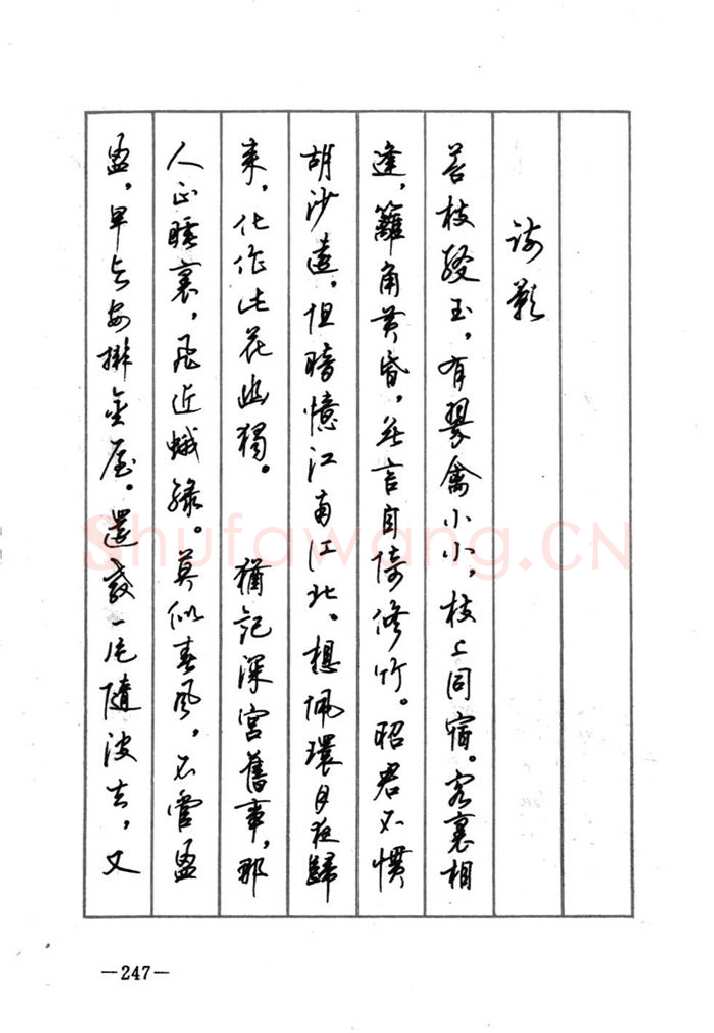 疏影
苔枝綴玉,有翠禽小小,枝上同宿。客裏相
逢,籬角黄昏,無言自倚修竹。昭君不慣
胡沙遠,但暗憶江南江北。想佩環月夜歸
來,化作此花幽獨。 猶記深宮舊事,那
人正睡裏,飛近蛾綠。莫似春風,不管盈
盈,早与安排金屋。還教一片隨波去,又
—247—
Shufawang.CN